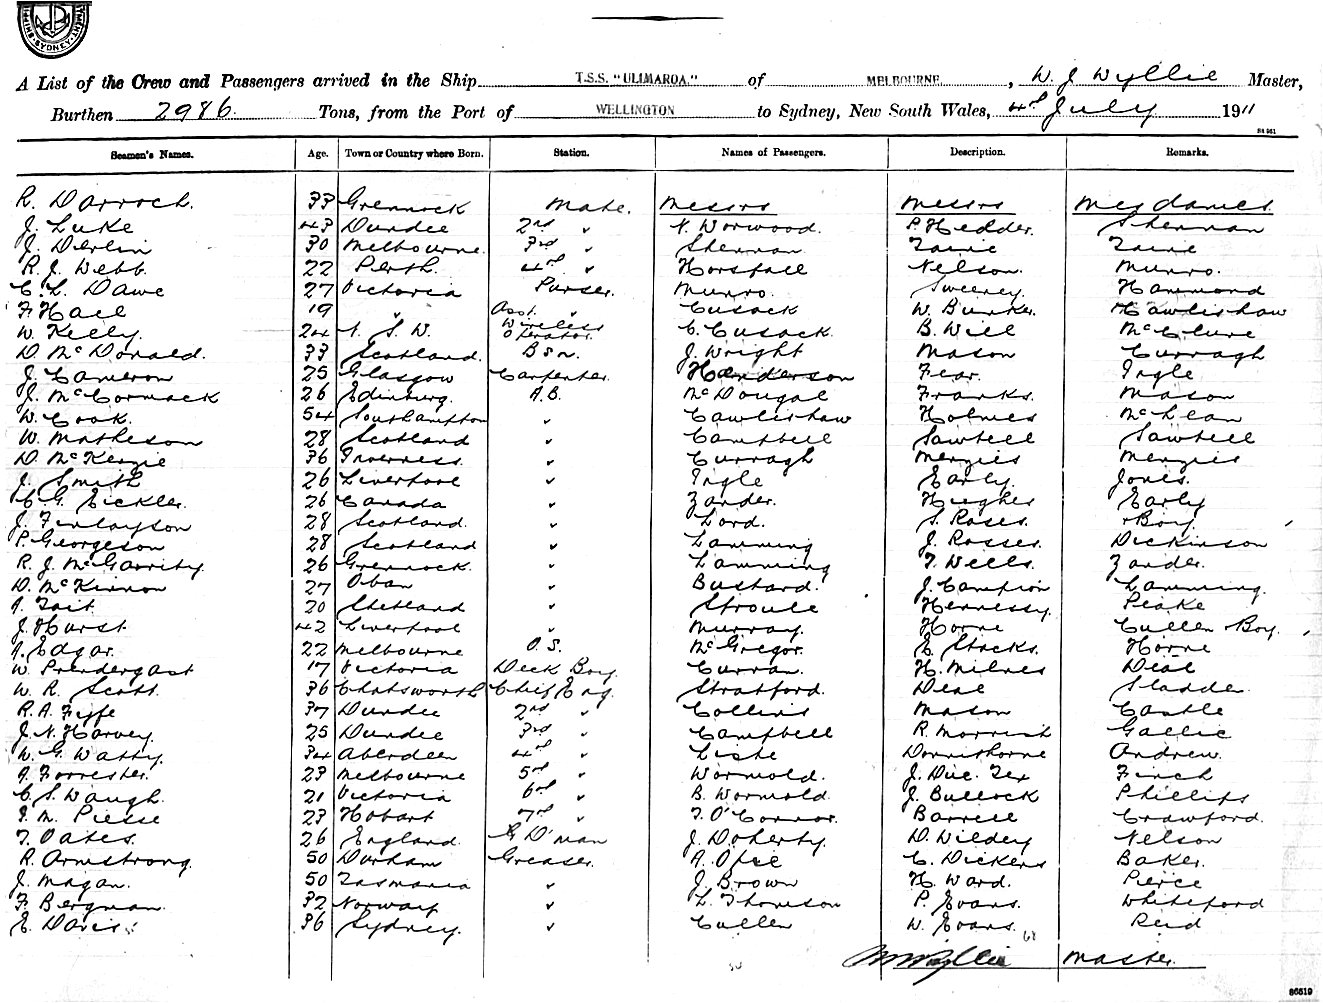 SHIPPING SYDNEY
A List of the Crew and Passengers arrived in the Ship T.S.S. "ULIMAROA." of MELBOURNE. , W. J. Wyllie Master,
Burthen 2986. Tons, from the Port of WELLINGTON to Sydney, New South Wales, 4th July 1911
Seamen's Names. Age. Town or Country where Born. Station. Names of Passengers. Description. Remarks.
R. Darroch. 33 Greenock Mate. Messrs Messrs Mesdames
J. Luke 43 Dundee 2nd " N. Worwood. P. Hedder. Sherman
J. Devlin 30 Melbourne. 3rd " Sherman Zaine Zaine
R. J. Webb. 22 Perth. 4th " Horsfall Nelson. Munro.
C. L. Dawe 27 Victoria Purser. Munro. Sweeney. Hammond
F. Hall 19 " Asst. " Cusack W. Bunker. Hawlishaw
W. Kelly. 24 N. S. W. Wireless Operator. C. Cusack. B. Will McClure
D. McDonald. 33 Scotland. Bsn. J. Wright Mason Curragh
J. Cameron 25 Glasgow Carpenter. Henderson Fear. Ingle
J. McCormack 26 Edinburg. A.B. McDougal Franks. Mason
W. Cook. 54 Southampton " Cawlishaw Holmes McLean
W. Matheson 28 Scotland " Campbell Sawbell Sawbell
D. McKenzie 36 Inverness. " Curragh Menzies Menzies
J. Smith 26 Liverpool " Ingle Early. Jones.
C. G. Eickler. 26 Canada " Zander. Hughes Early
J. Finlayson 28 Scotland. " Lord. S. Roses. + Boy.
P. Georgeson 28 Scotland " Lamming J. Rosser. Dickinson
R. J. McGarrity. 26 Greenock. " Lamming T. Wells. Zander.
D. McKinnon 27 Oban " Bustard. J. Campion Lamming.
J. Tait. 20 Shetland " Stroule Hennessy. Peake
J. Hurst. 42 Liverpool " Murray. Horne Cullen + Boy.
J. Edgar. 22 Melbourne O.S. McGregor. E. Stocks. Horne
W. Prendergast 17 Victoria Deck Boy. Curran. H. Milnes Deal
W. R. Scott. 36 Chatsworth Chief Eng. Stratford. Deal Sladder.
R. A. Fyffe 37 Dundee 2nd " Collins Mason Castle
J. N. Harvey. 25 Dundee 3rd " Campbell R. Morrish Gallie
W. G. Watty. 34 Aberdeen 4th " Liste Dornithorne Andrew.
J. Forrester. 23 Melbourne 5th " Wormold. Finch
C. S. Waugh. 21 Victoria 6th " B. Wormold. J. Bullock Phillips
J. M. Piesse 23 Hobart 7th " T. O'Connor. Barrell Crawford.
T. Oates. 26 England. D'man J. Doherty. D. Wildey Nelson
R. Armstrong. 50 Durham Greaser. A. Opie C. Dickens Baker.
J. Magan. 50 Tasmania " J. Brown H. Ward. Pierce
F. Bergman. 32 Norway " L. Thomson P. Evans. Whiteford
E. Davis. 36 Sydney. " Cullen W. Evans. Reid
W. J. Wyllie Master.
86519